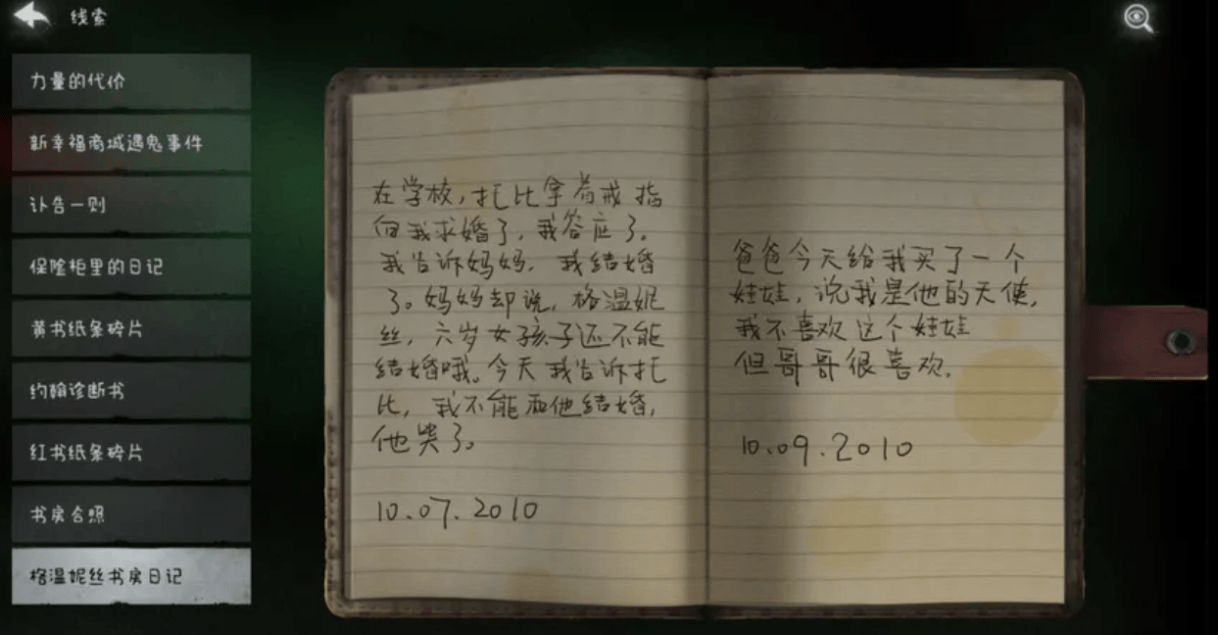 线索
力量的代价
新幸福商城遇鬼事件
讣告一则
保险柜里的日记
黄书纸条碎片
约翰诊断书
红书纸条碎片
书房合照
格温妮丝书房日记
在学校，托比拿着戒指
向我求婚了，我答应了。
我告诉妈妈，我结婚
了。妈妈却说，格温妮
丝，六岁女孩子还不能
结婚哦。今天我告诉托
比，我不能和他结婚，
他哭了。
10.07.2010
爸爸今天给我买了一个
娃娃，说我是他的天使，
我不喜欢这个娃娃
但哥哥很喜欢.
10.09.2010